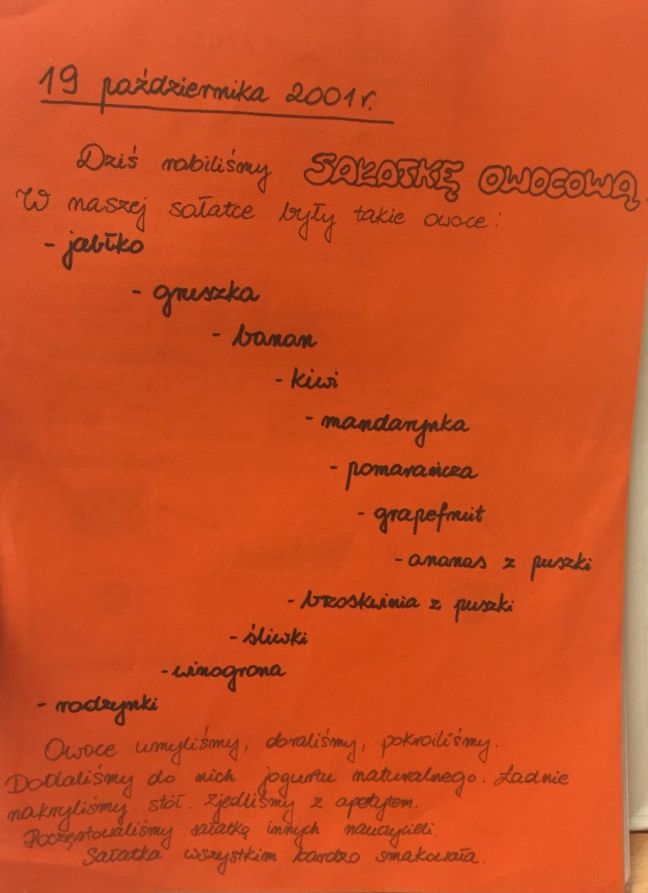 19 października 2001 r.
Dziś robiliśmy SAŁATKĘ OWOCOWĄ.
W naszej sałatce były takie owoce:
- jabłko
- gruszka
- banan
- kiwi
- mandarynka
- pomarańcza
- grapefruit
- ananas z puszki
- brzoskwinia z puszki
- śliwki
- winogrona
- rodzynki
Owoce umyliśmy, obraliśmy, pokroiliśmy.
Dodaliśmy do nich jogurtu naturalnego. Ładnie
nakryliśmy stół. Zjedliśmy z apetytem.
Poczęstowaliśmy sałatką innych nauczycieli.
Sałatka wszystkim bardzo smakowała.